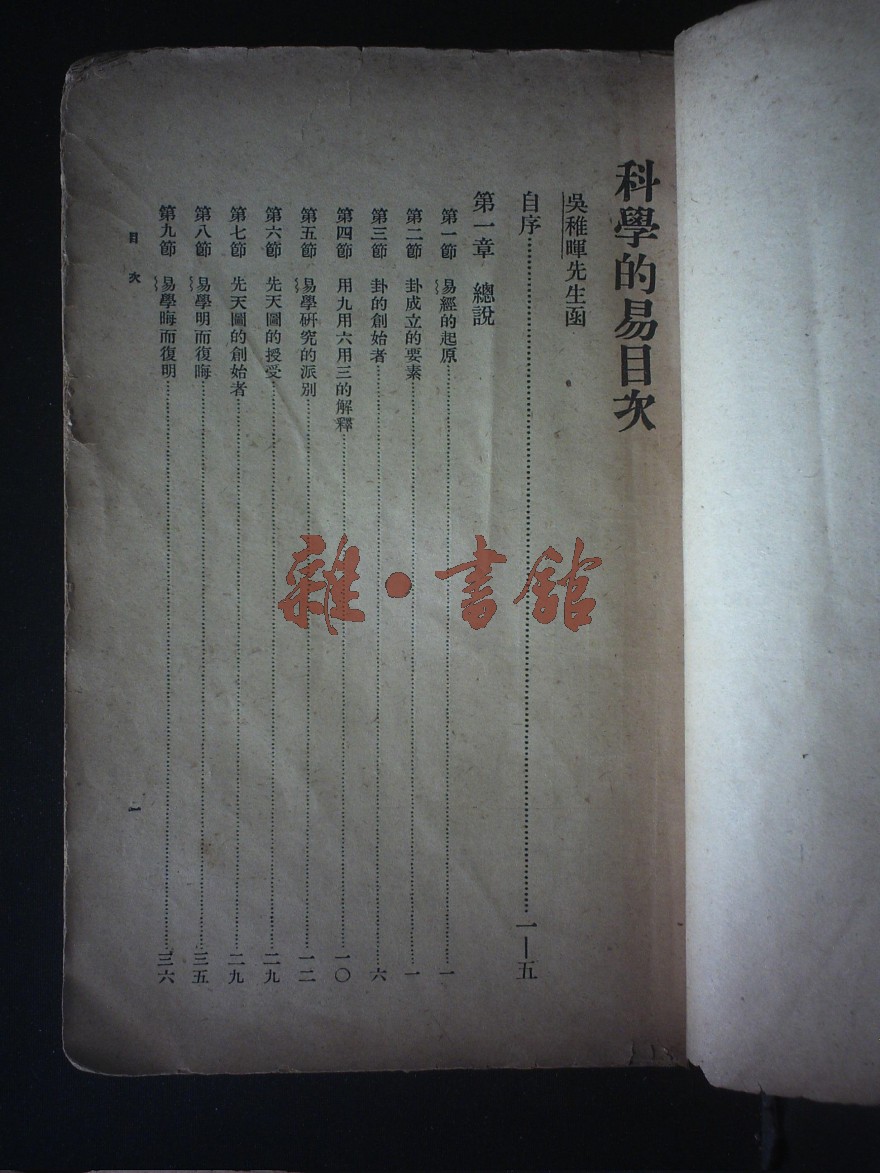 科學的易目次
吳稚暉先生函
自序……一—五
第一章 總說
第一節 易經的起原……一
第二節 卦成立的要素……一
第三節 卦的創始者……六
第四節 用九用六用三的解釋……一〇
第五節 易學研究的派別……一二
第六節 先天圖的授受……二九
第七節 先天圖的創始者……二九
第八節 易學明而復晦……三五
第九節 易學晦而復明……三六
目次 一
雜·書館